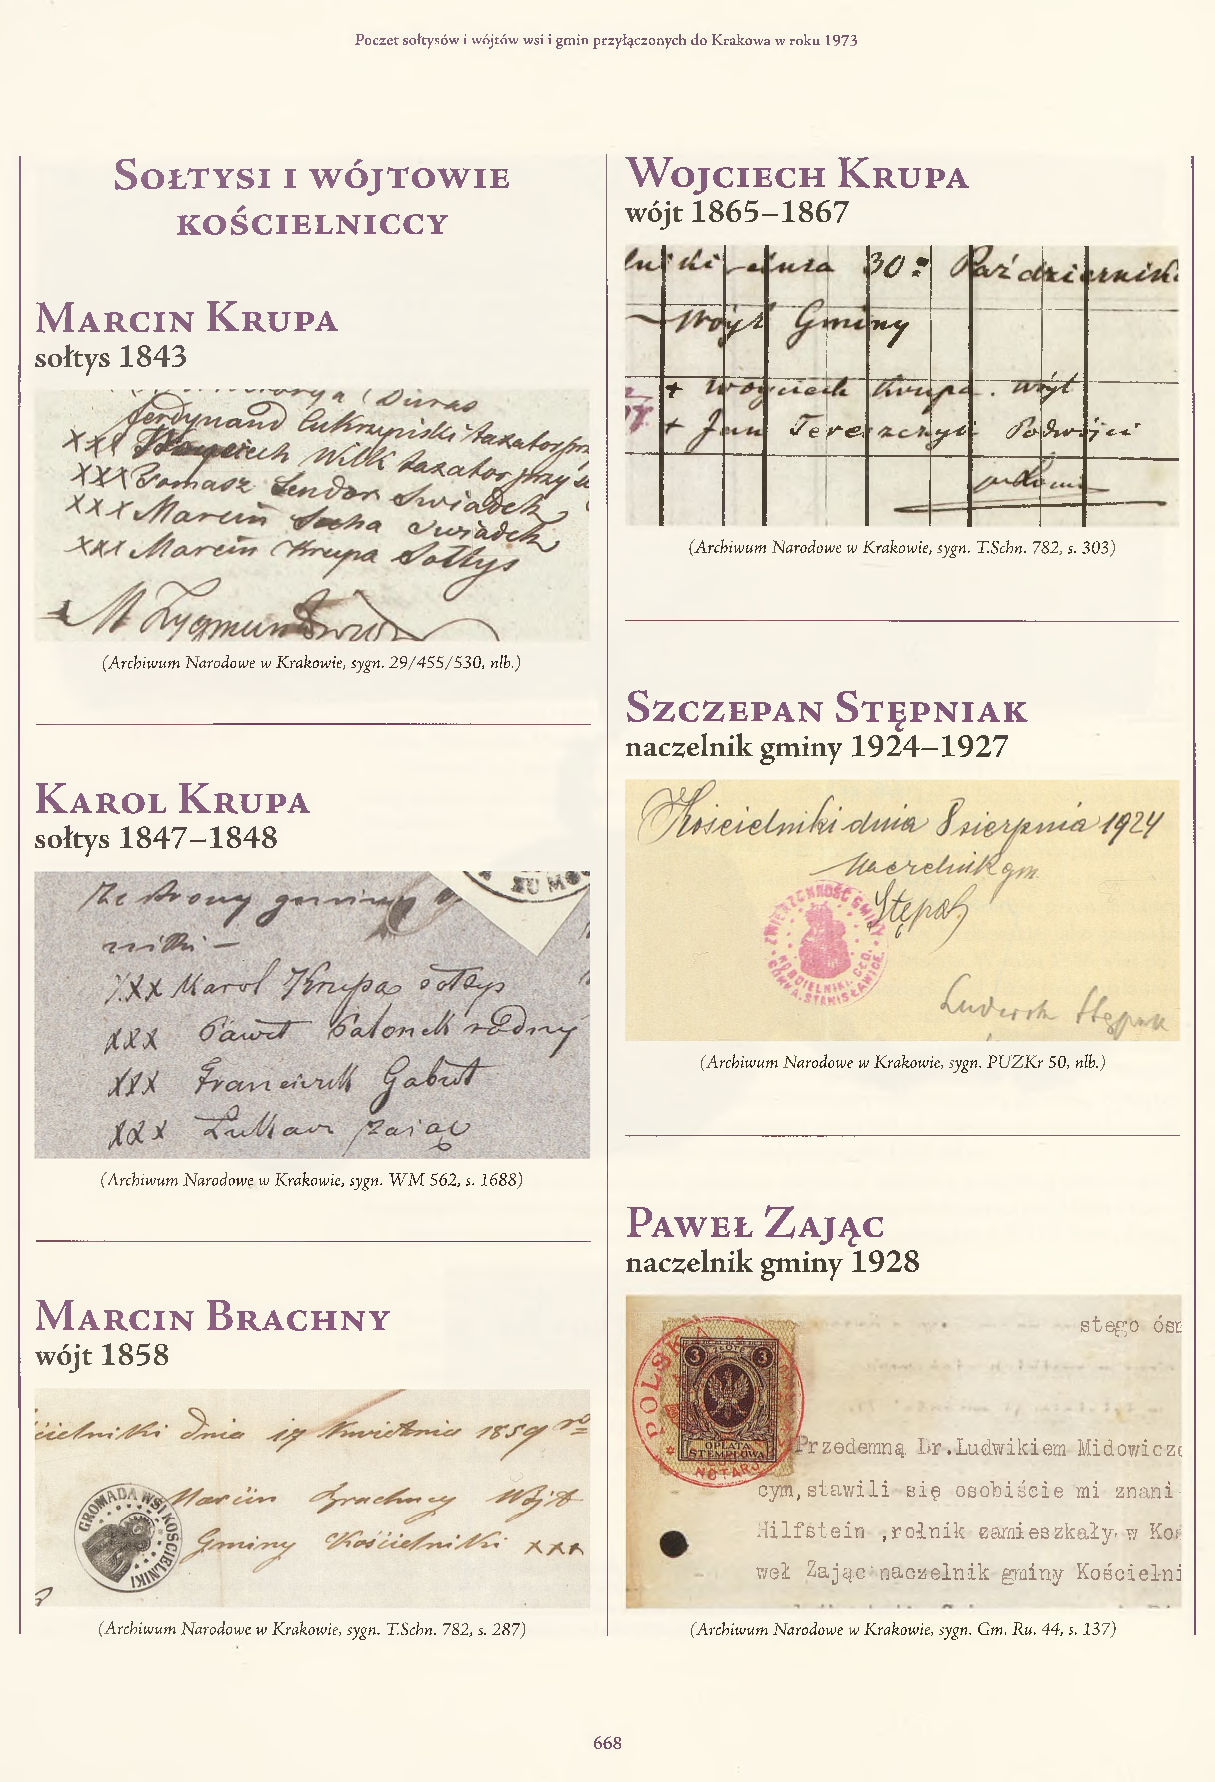 Poczet sołtysów i wójtów wsi i gmin przyłączonych do Krakowa w roku 1973
Sołtysi i wójtowie
kościelniccy
Marcin Krupa
sołtys 1843
Ferdynand Cukrzyński taxator
XXX Woyciech Wilk taxator przy
XXX Tomasz Sendor Swiadek
XXX Marcin Socha Swiadek
XXX Marcin Krupa Sołtys
(Archiwum Narodowe w Krakowie, sygn. 29/455/530, nlb.)
Karol Krupa
sołtys 1847–1848
Ze strony gminy
XXX Karol Krupa sołtys
XXX Paweł Palonek radny
XXX Franciszek Gabut
XXX Łukasz Zaiąc
(Archiwum Narodowe w Krakowie, sygn. WM 562, s. 1688)
Marcin Brachny
wójt 1858
cielniki dnia 17 Kwietnia 1859 ro
GROMADA WSI KOSCIELNIKI
Marcin Brachny Wójt
Gminy Kościelniki xxx
(Archiwum Narodowe w Krakowie, sygn. T.Schn. 782, s. 287)
Wojciech Krupa
wójt 1865–1867
lniki dnia 30 Października
Wóyt Gminy
+ Woyciech Krupa . wóyt
+ Jan Tereszczyk Podwójci
(Archiwum Narodowe w Krakowie, sygn. T.Schn. 782, s. 303)
Szczepan Stępniak
naczelnik gminy 1924–1927
Kościelniki dnia 8 sierpnia 1924
Naczelnik gm.
ZWIERZCHNOŚĆ GMINY
KOŚCIELNIKI, CŁO,
GÓRKA STANISŁAWICE
(Archiwum Narodowe w Krakowie, sygn. PUZKr 50, nlb.)
Paweł Zając
naczelnik gminy 1928
stęgo ósm
POLSKA
3 ZŁOTE 3
OPŁATA
STEMPLOWA
NOTARJ
Przedemną Dr.Ludwikiem Midowicze
cym,stawili się osobiście mi znani
Hilfstein ,rolnik zamieszkały w Koś
weł Zając naczelnik gminy Kościelni
(Archiwum Narodowe w Krakowie, sygn. Gm. Ru. 44, s. 137)
668